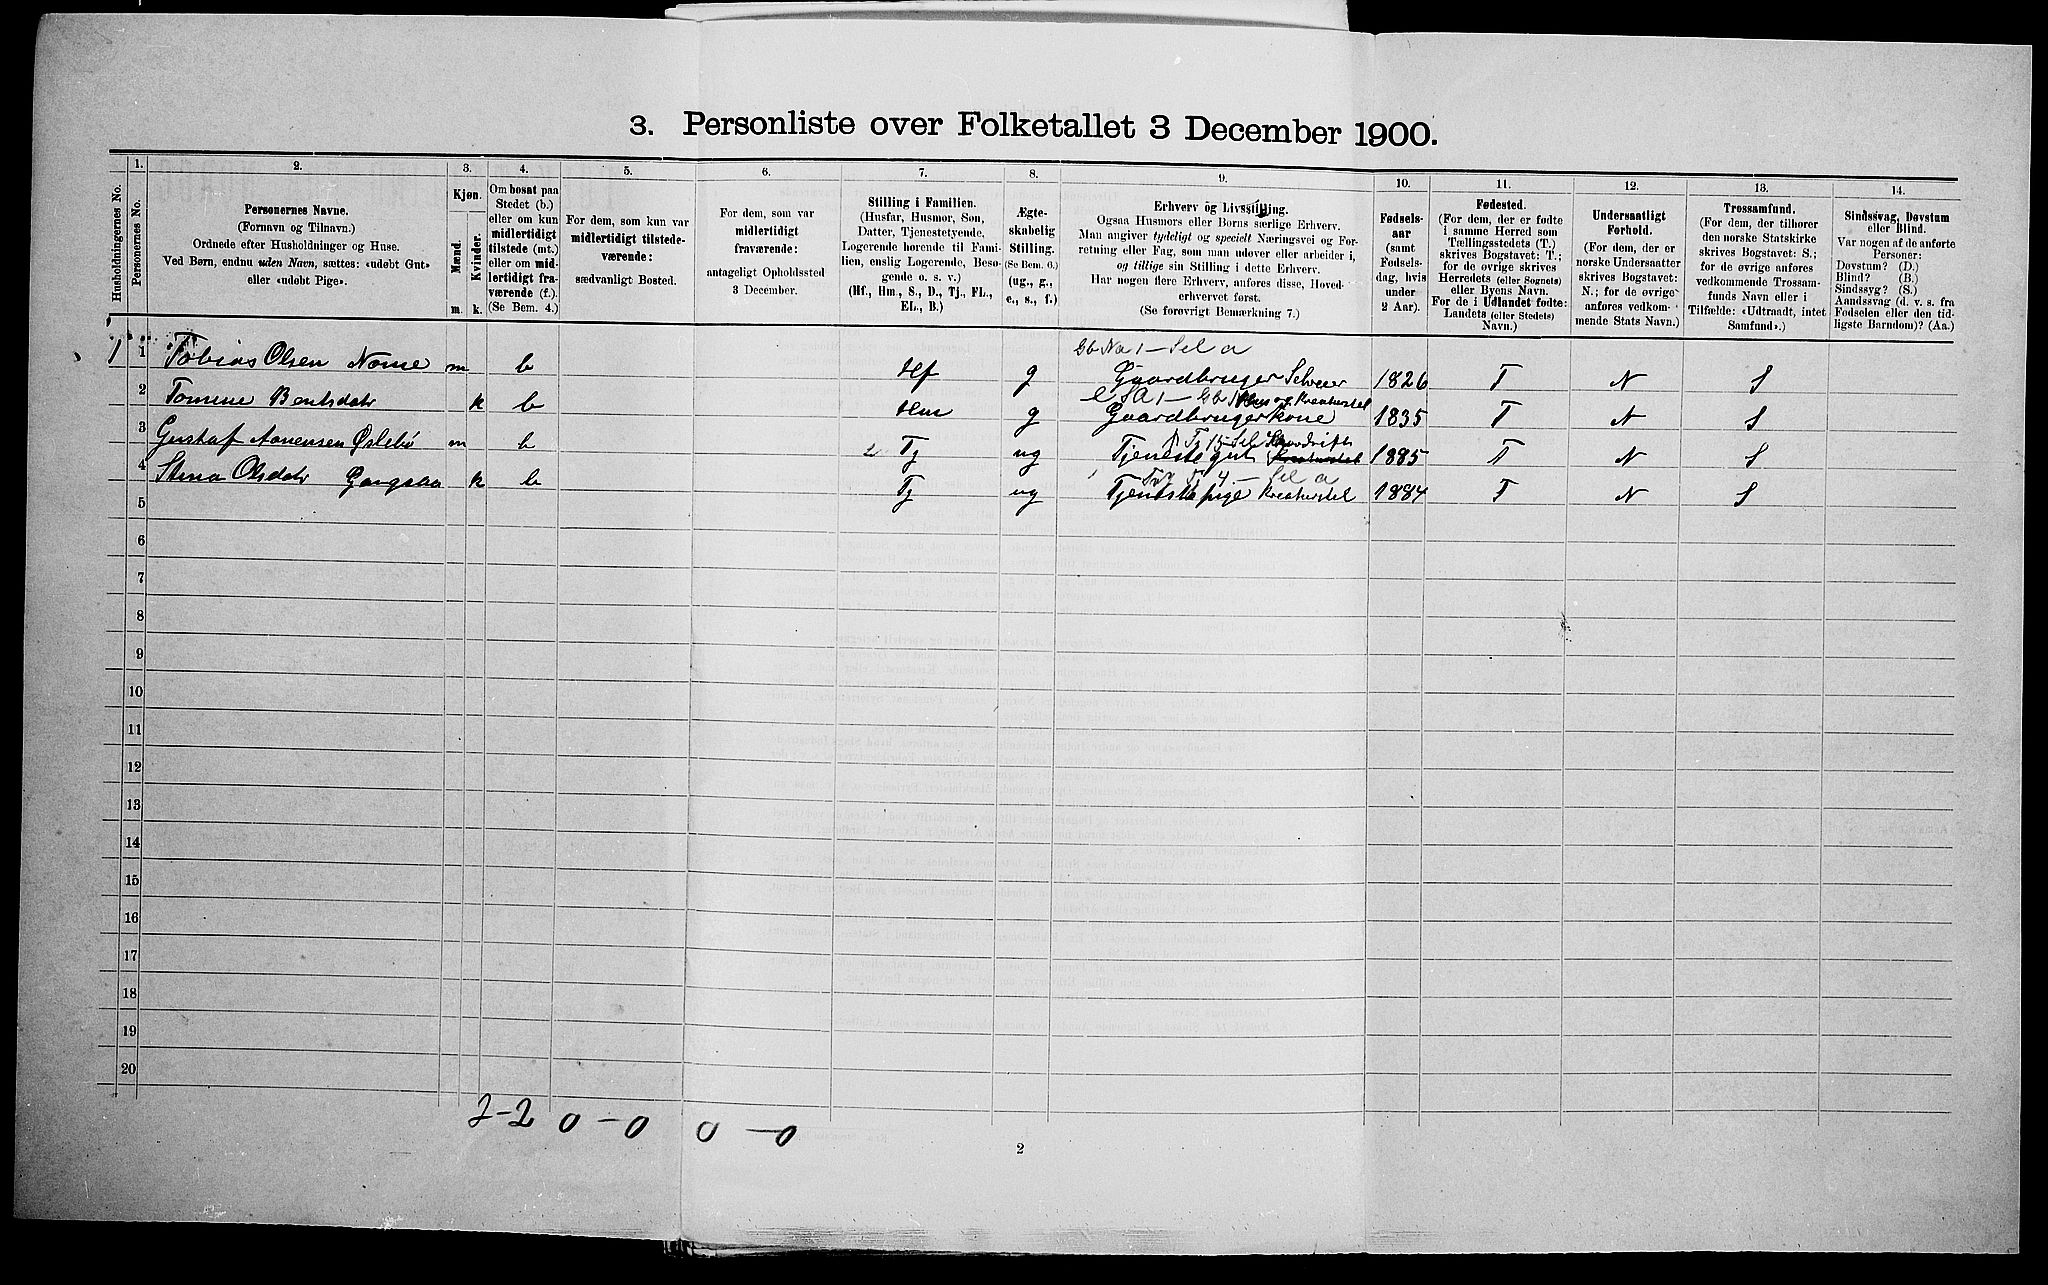 3. Personliste over Folketallet 3 December 1900.
1. 2. 3. 4. 5. 6. 7. 8. 9. 10. 11. 12. 13. 14.
Husholdningernes No.
Personernes No.
Personernes Navne.
(Fornavn og Tilnavn.)
Ordnede efter Husholdninger og Huse.
Ved Børn, endnu uden Navn, sættes: «udøbt Gut»
eller «udøbt Pige».
Kjøn.
Mænd. Kvinder.
m. k.
Om bosat paa
Stedet (b.)
eller om kun
midlertidigt
tilstede (mt.)
eller om mid-
lertidigt fra-
værende (f.).
(Se Bem. 4.)
For dem, som kun var
midlertidigt tilstede-
værende:
sædvanligt Bosted.
For dem, som var
midlertidigt
fraværende:
antageligt Opholdssted
3 December.
Stilling i Familien.
(Husfar, Husmor, Søn,
Datter, Tjenestetyende,
Logerende hørende til Fami-
lien, enslig Logerende, Besø-
gende o. s. v.)
(Hf., Hm., S., D., Tj., FL.,
EL., B.)
Ægte-
skabelig
Stilling.
(Se Bem. 6.)
(ug., g.,
e., s., f.)
Erhverv og Livsstilling.
Ogsaa Husmors eller Børns særlige Erhverv.
Man angiver tydeligt og specielt Næringsvei og For-
retning eller Fag, som man udøver eller arbeider i,
og tillige sin Stilling i dette Erhverv.
Har nogen flere Erhverv, anføres disse, Hoved-
erhvervet først.
(Se forøvrigt Bemærkning 7.)
Fødsels-
aar
(samt
Fødsels-
dag, hvis
under
2 Aar).
Fødested.
(For dem, der er fødte
i samme Herred som
Tællingsstedets (T.)
skrives Bogstavet: T.;
for de øvrige skrives
Herredets (eller Sognets)
eller Byens Navn.
For de i Udlandet fødte:
Landets (eller Stedets)
Navn.)
Undersaatligt
Forhold.
(For dem, der er
norske Undersaatter
skrives Bogstavet:
N.; for de øvrige
anføres vedkom-
mende Stats Navn.)
Trossamfund.
(For dem, der tilhører
den norske Statskirke
skrives Bogstavet: S.;
for de øvrige anføres
vedkommende Trossam-
funds Navn eller i
Tilfælde: «Udtraadt, intet
Samfund».)
Sindssvag, Døvstum
eller Blind.
Var nogen af de anførte
Personer:
Døvstum? (D.)
Blind? (B.)
Sindssyg? (S.)
Aandssvag (d. v. s. fra
Fødselen eller den tid-
ligste Barndom)? (Aa.)
Gb No 1 – Sel a
1 1 Tobias Olsen Nome m b Hf g Gaardbruger Selveier 1826 T N S
2 Tomine Bentsdatr k b Hm g Gaardbrugerkone 1835 T N S
3 Gustaf Aanensen Øslebø m b Tj ug Tjenestegut Kreaturstel 1885 T N S
4 Stina Olsdatr Gangsaa k b Tj ug Tjenestepige Kreaturstel 1884 T N S
5
6
7
8
9
10
11
12
13
14
15
16
17
18
19
20
2-2 0-0 0-0
2